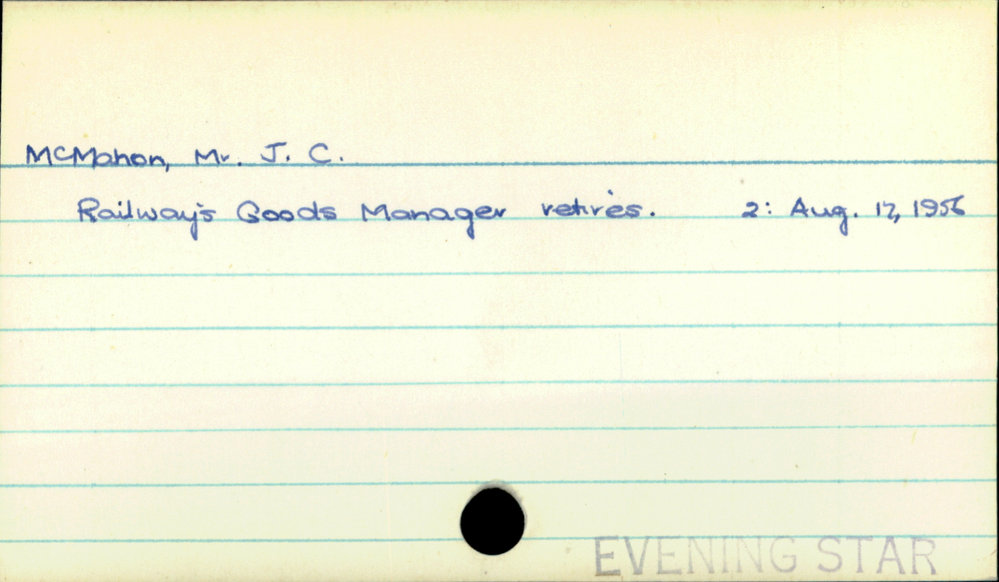 McMahon, Mr. J. C.
Railway's Goods Manager retires. 2: Aug. 17, 1956
EVENING STAR